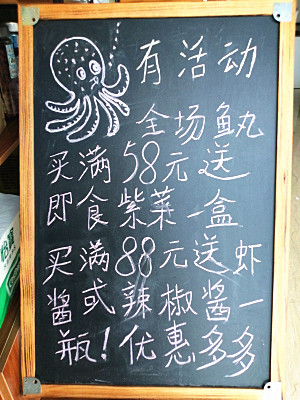 有活动
全场鱼丸
买满58元送
即食紫菜一盒
买满88元送虾
酱或辣椒酱一
瓶!优惠多多